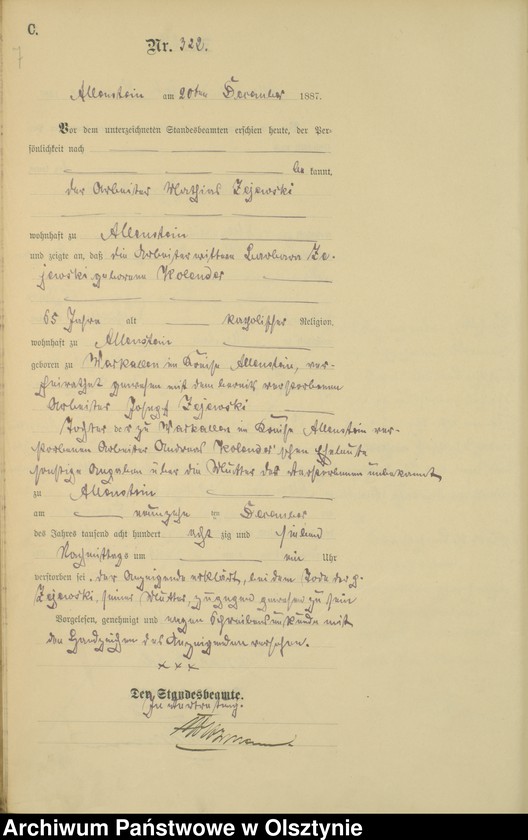 C.
7
Nr. 322.
Allenstein am 20ten December 1887.
Vor dem unterzeichneten Standesbeamten erschien heute, der Per-
sönlichkeit nach
be kannt,
der Arbeiter Mathias Zejewski
wohnhaft zu Allenstein
und zeigte an, daß die Arbeiterwittwe Barbara Ze-
jewski geborene Kolender
65 Jahre alt katholischer Religion,
wohnhaft zu Allenstein
geboren zu Warkallen im Kreise Allenstein, ver-
heirathet gewesen mit dem bereits verstorbenen
Arbeiter Joseph Zejewski
Tochter der zu Warkallen im Kreise Allenstein ver-
storbenen Arbeiter Andreas Kolender'schen Eheleute
sonstige Angaben über die Mutter der Verstorbenen unbekannt
zu Allenstein
am neunzehn ten December
des Jahres tausend acht hundert acht zig und sieben
Nachmittags um ein Uhr
verstorben sei. der Anzeigende erklärt, bei dem Tode der p.
Zejewski, seiner Mutter, zugegen gewesen zu sein
Vorgelesen, genehmigt und wegen Schreibensunkunde mit
den Handzeichen des Anzeigenden versehen.
x x x
Der Standesbeamte.
In Vertretung.
Archiwum Państwowe w Olsztynie